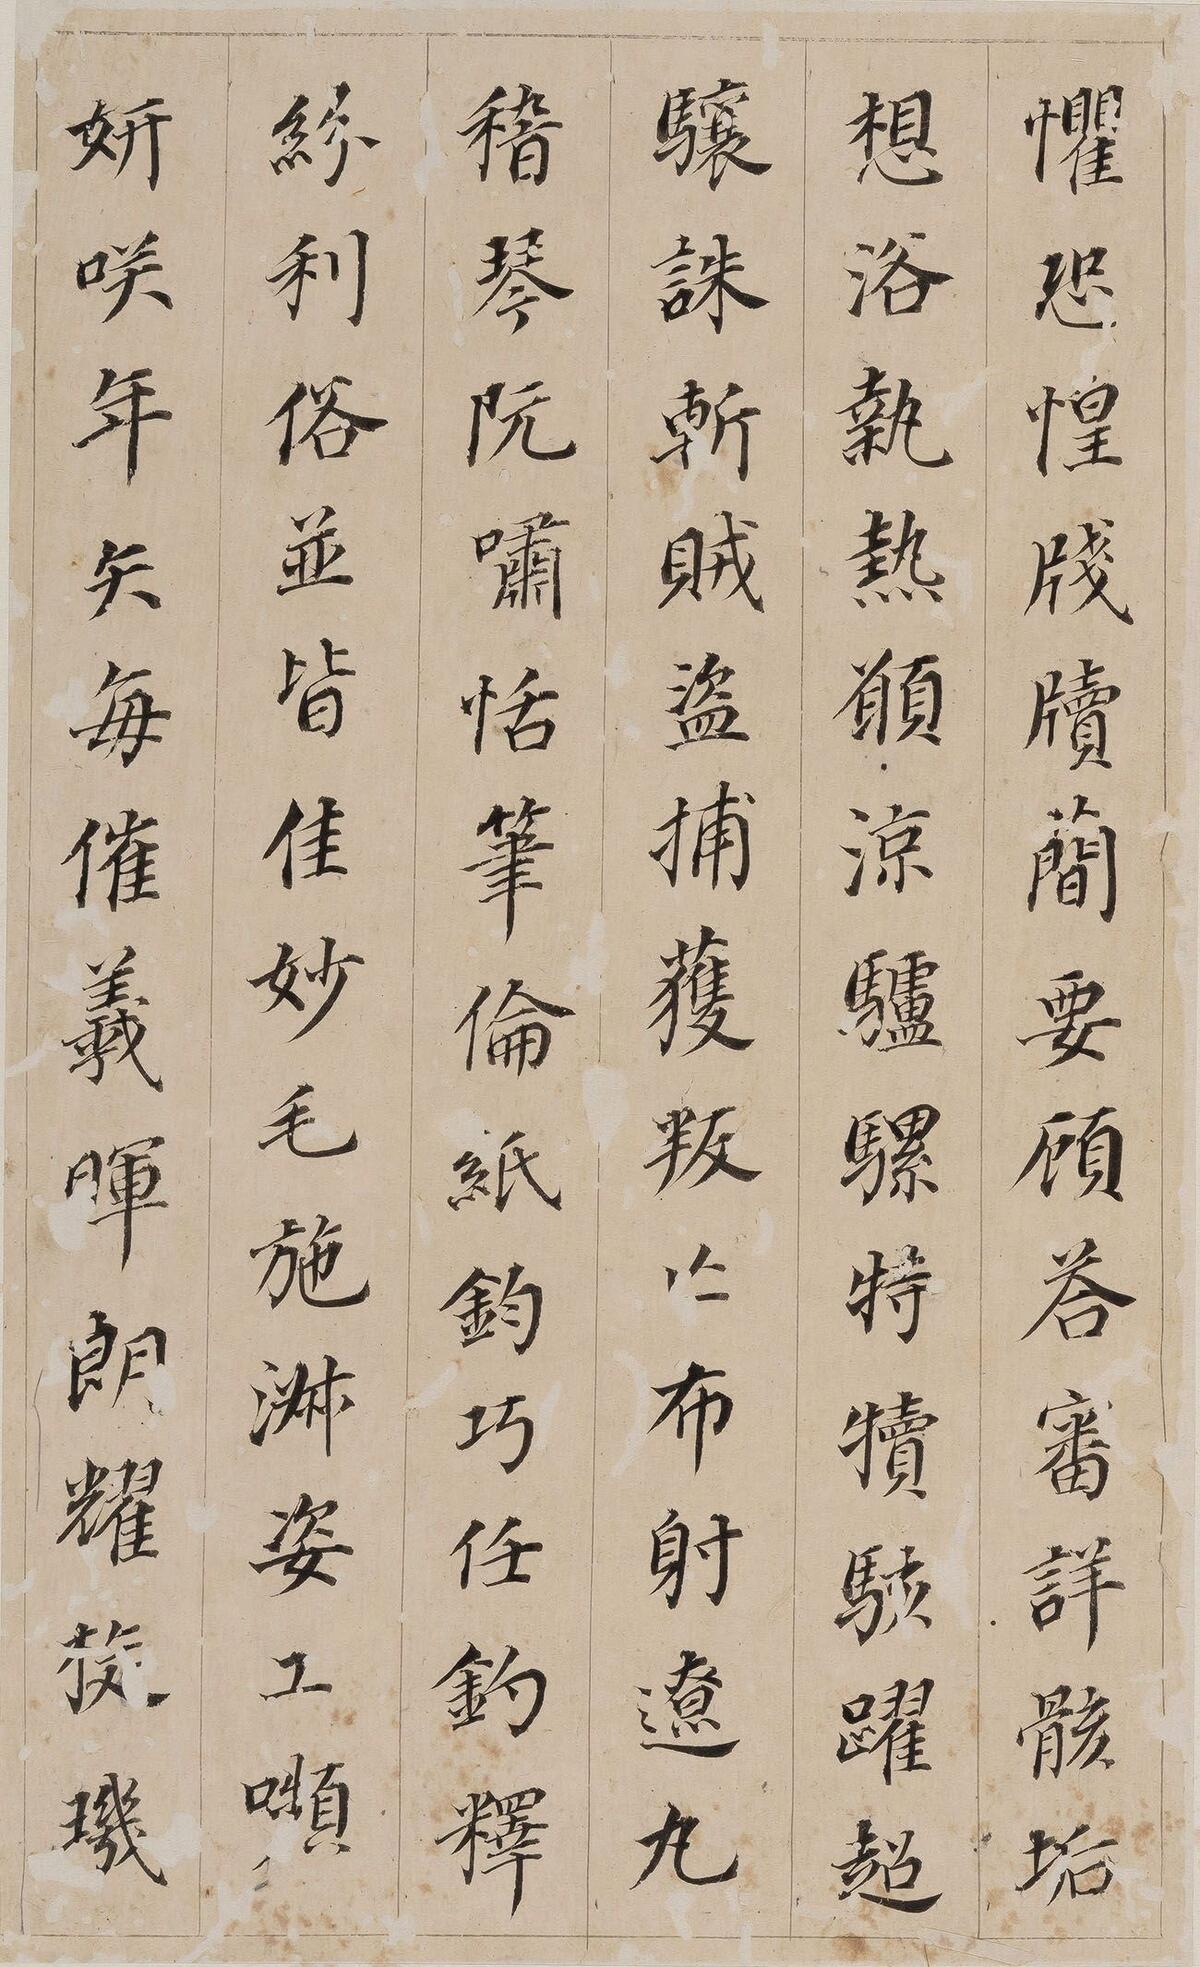 懼恐惶牋牘簡要顧答審詳骸垢
想浴執熱願涼驢騾特犢駭躍超
驤誅斬賊盜捕獲叛亡布射遼丸
嵇琴阮嘯恬筆倫紙鈞巧任釣釋
紛利俗並皆佳妙毛施淑姿工嚬
妍咲年矢每催羲暉朗耀旋璣